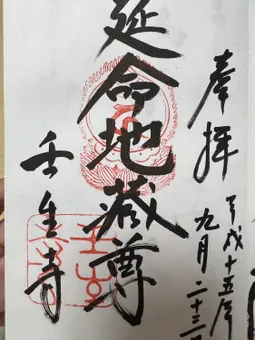 奉拝
平成十五年
九月二十三日
延命地蔵尊
壬生寺